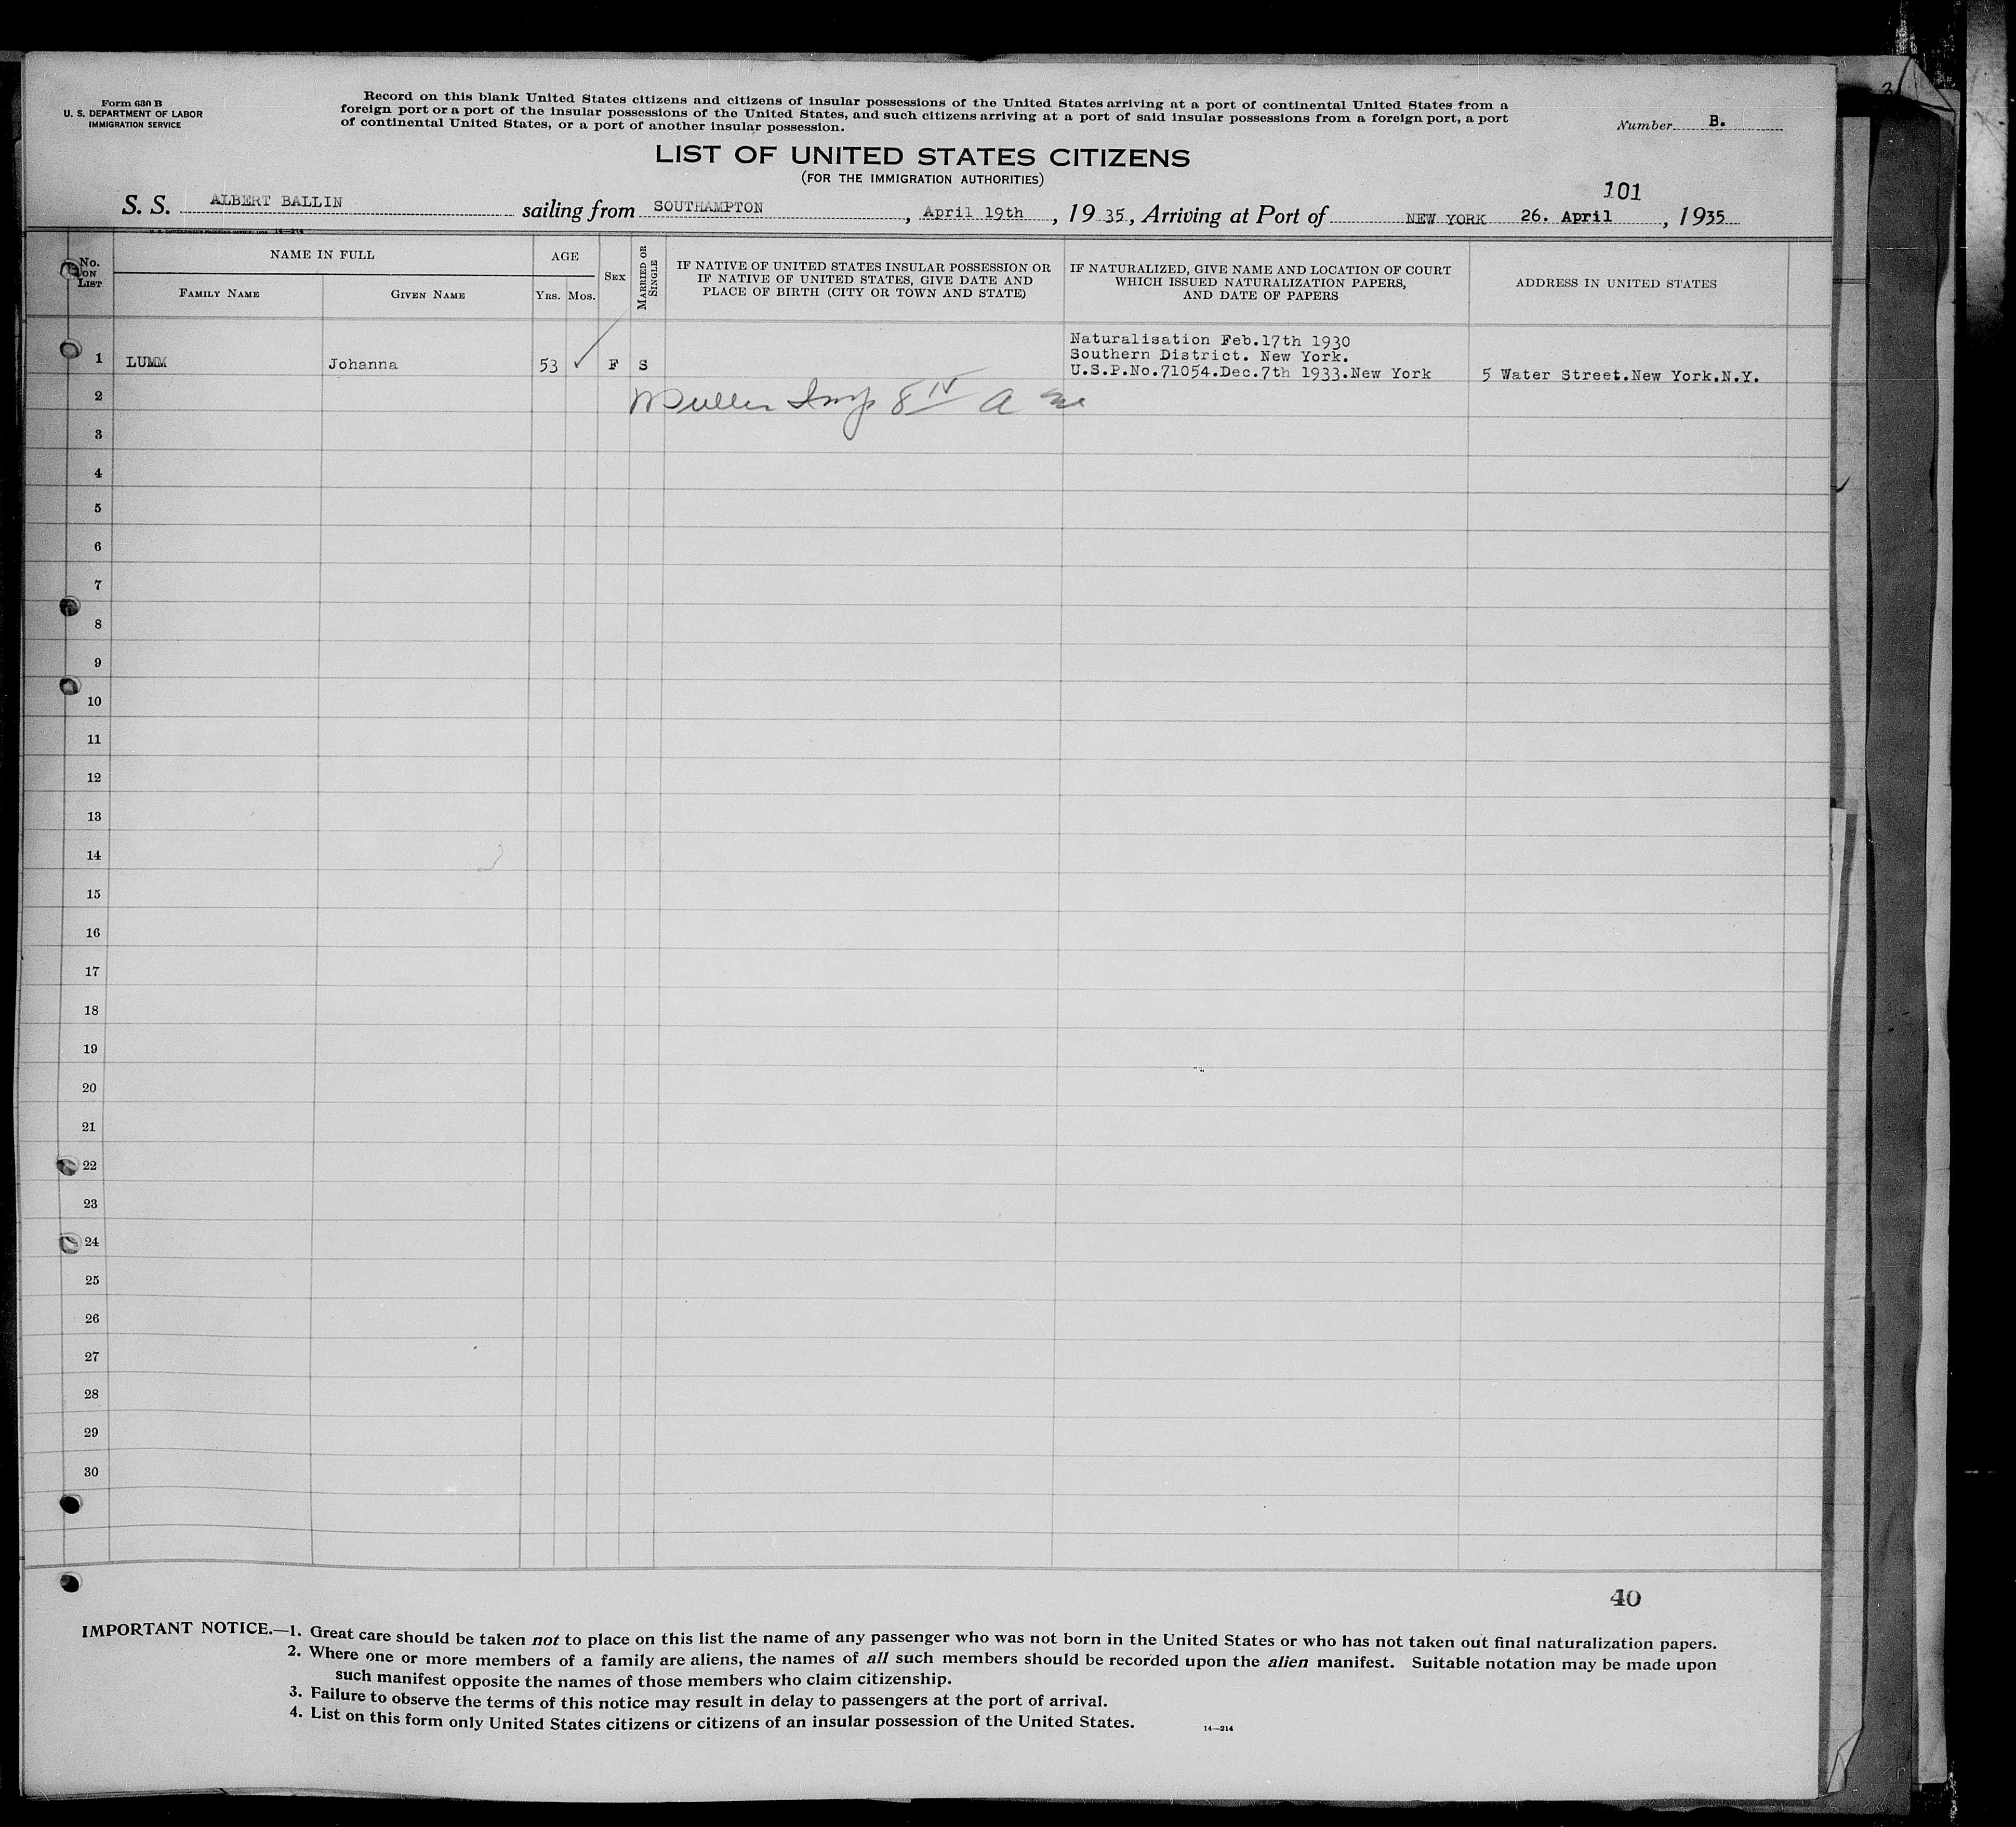 Form 630 B
U. S. DEPARTMENT OF LABOR
IMMIGRATION SERVICE
Record on this blank United States citizens and citizens of insular possessions of the United States arriving at a port of continental United States from a
foreign port or a port of the insular possessions of the United States, and such citizens arriving at a port of said insular possessions from a foreign port, a port
of continental United States, or a port of another insular possession.
Number B.
LIST OF UNITED STATES CITIZENS
(FOR THE IMMIGRATION AUTHORITIES)
101
S. S. ALBERT BALLIN sailing from SOUTHAMPTON, April 19th, 1935, Arriving at Port of NEW YORK 26. April, 1935
No. on List
NAME IN FULL
Family Name
Given Name
AGE
Yrs. Mos.
Sex
Married or Single
IF NATIVE OF UNITED STATES INSULAR POSSESSION OR
IF NATIVE OF UNITED STATES, GIVE DATE AND
PLACE OF BIRTH (CITY OR TOWN AND STATE)
IF NATURALIZED, GIVE NAME AND LOCATION OF COURT
WHICH ISSUED NATURALIZATION PAPERS,
AND DATE OF PAPERS
ADDRESS IN UNITED STATES
Naturalisation Feb.17th 1930
Southern District. New York.
1 LUMM Johanna 53 ✓ F S U.S.P.No.71054.Dec.7th 1933.New York 5 Water Street.New York.N.Y.
2 Muller Insp 8 IV A
3
4
5
6
7
8
9
10
11
12
13
14
15
16
17
18
19
20
21
22
23
24
25
26
27
28
29
30
40
IMPORTANT NOTICE.—1. Great care should be taken not to place on this list the name of any passenger who was not born in the United States or who has not taken out final naturalization papers.
2. Where one or more members of a family are aliens, the names of all such members should be recorded upon the alien manifest. Suitable notation may be made upon
such manifest opposite the names of those members who claim citizenship.
3. Failure to observe the terms of this notice may result in delay to passengers at the port of arrival.
4. List on this form only United States citizens or citizens of an insular possession of the United States.
14—214